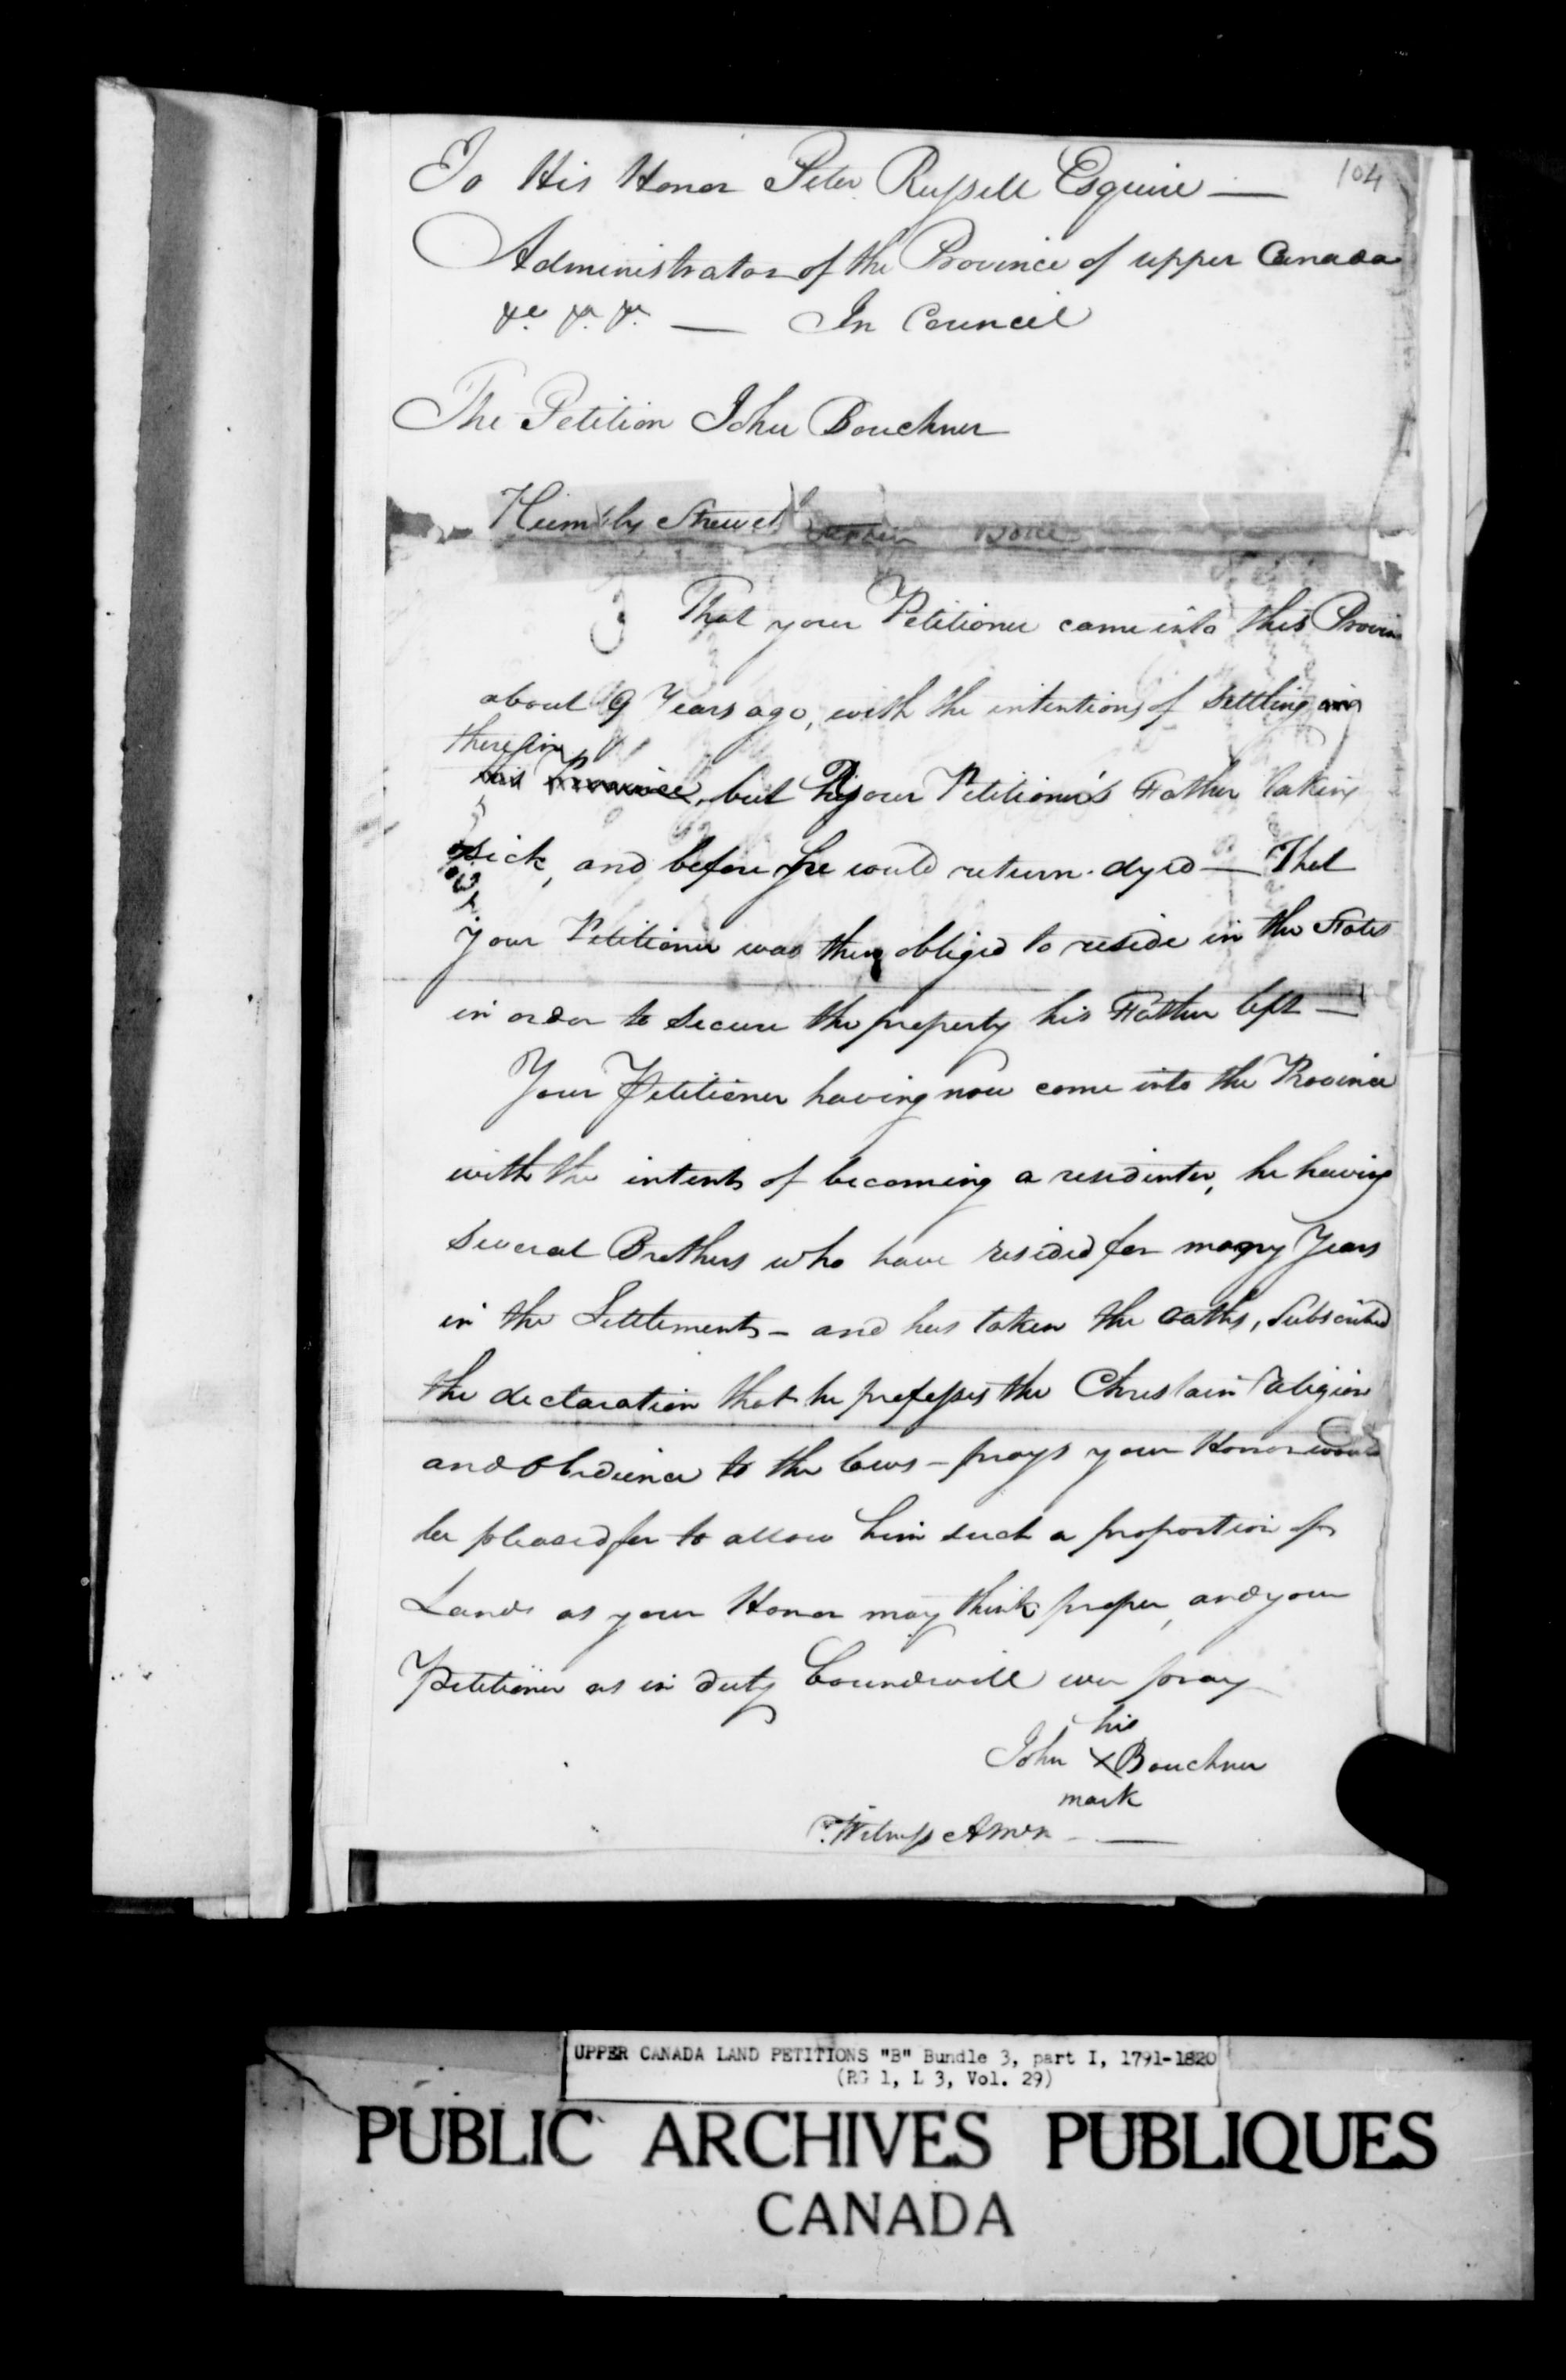 104
To His Honor Peter Russell Esquire —
Administrator of the Province of upper Canada
&c. &c. &c. — In Council
The Petition John Bouchner
Humbly Sheweth
That your Petitioner came into this Provin
about 9 Years ago, with the intentions of Settling
therein
this Province, but your Petitioner's Father taking
sick, and before he could return dyed — That
your Petitioner was then obliged to reside in the States
in order to secure the property his Father left —
Your Petitioner having now come into the Province
with the intents of becoming a residenter, he having
several Brothers who have resided for many Years
in the Settlements — and has taken the oaths, Subscribed
the declaration that he professes the Christain Religion
and Obedience to the laws — prays your Honor would
be pleased for to allow him such a proportion of
Lands as your Honor may think proper, and your
Petitioner as in duty bound will ever pray
his
John X Bouchner
mark
Witness
UPPER CANADA LAND PETITIONS "B" Bundle 3, part I, 1791-1820
(RG 1, L 3, Vol. 29)
PUBLIC ARCHIVES PUBLIQUES
CANADA